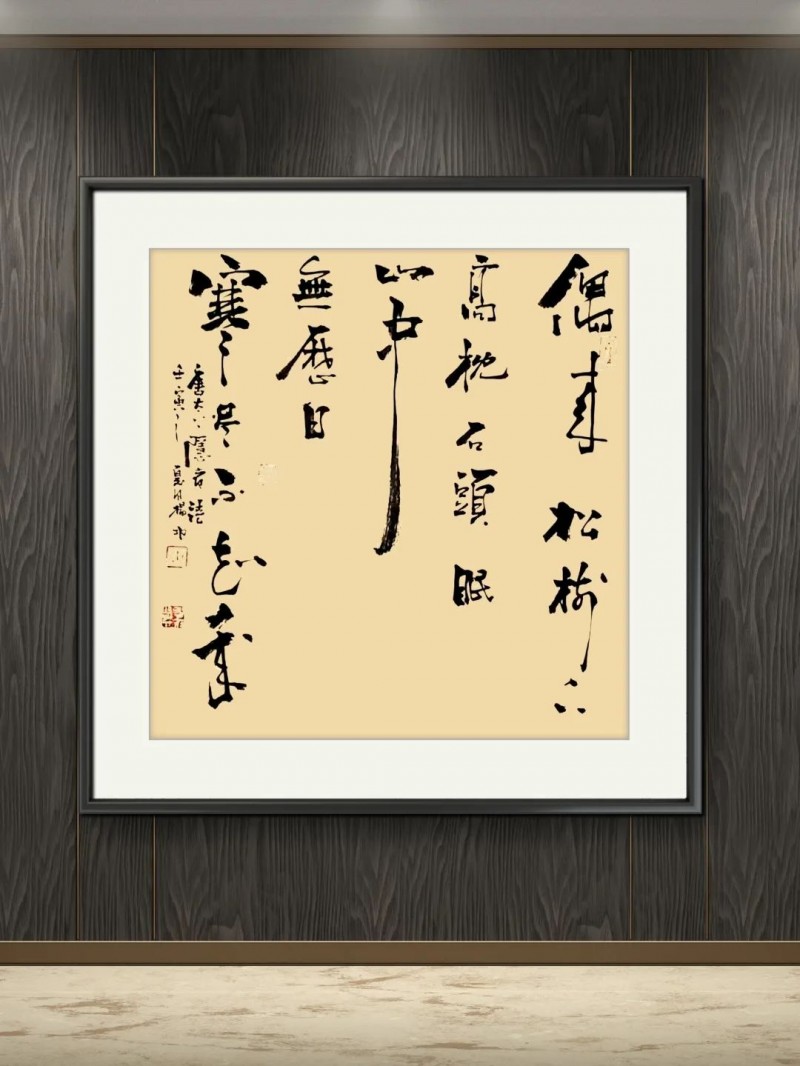 偶來松樹下
高枕石頭眠
山中
無歷日
寒盡不知年
唐太上隱者詩
壬寅